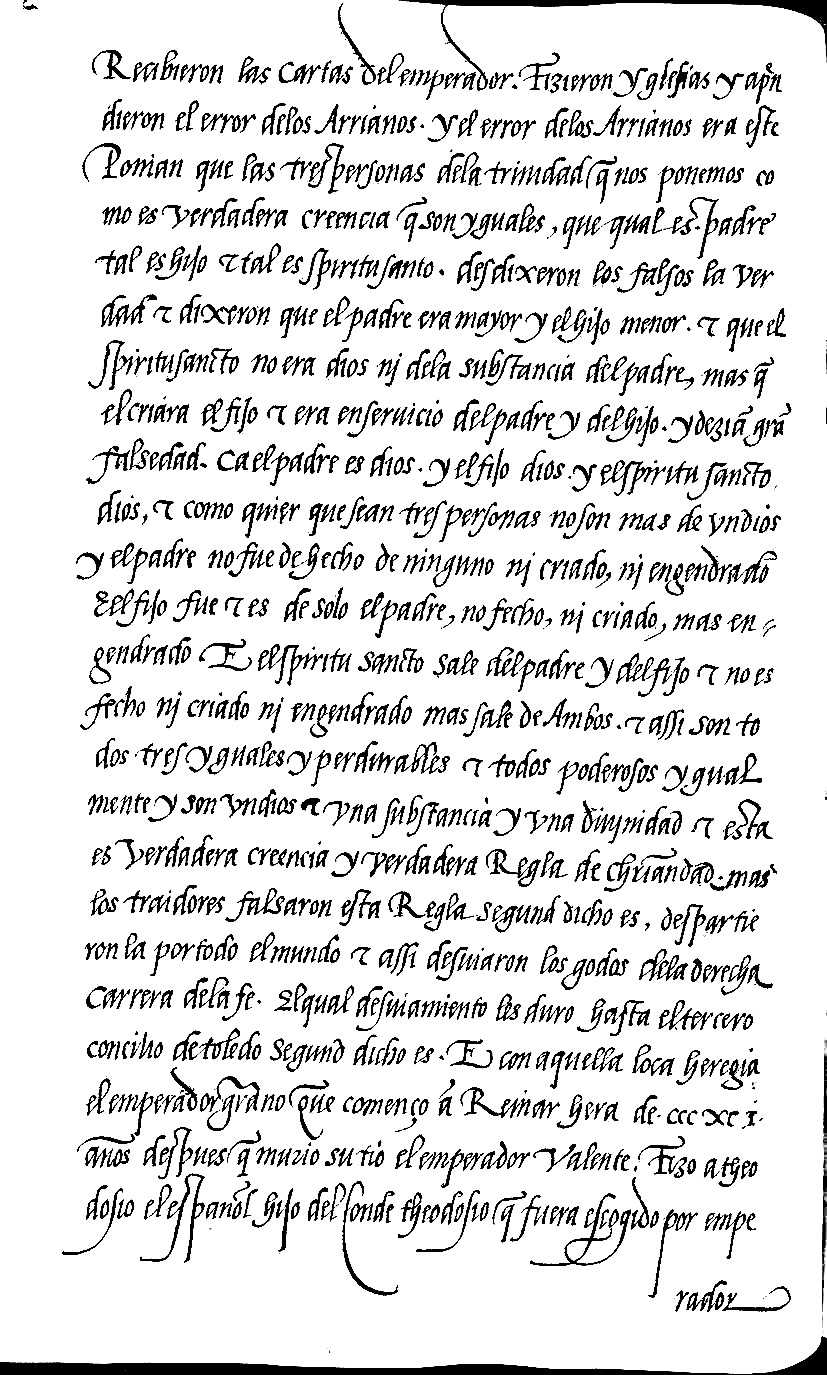 Recibieron las Cartas del emperador. Fizieron yglesias y apñ
dieron el error delos Arrianos. y el error delos Arrianos era este
Ponian que las tres personas dela trinidad q̃ nos ponemos co
mo es verdadera creencia q̃ son yguales, que qual es. padre
tal es hijo τ tal es spiritu santo. desdixeron los falsos la ver
dad τ dixeron que el padre era mayor y el hijo menor. τ que el
spiritu sancto no era dios nj dela substancia del padre, mas q̃
el criara el fijo τ era en seruicio del padre y del hijo. y deziã grã
falsedad. Ca el padre es dios. y el fijo dios. y el spiritu sancto
dios, τ como quier que sean tres personas no son mas de vn dios
y el padre no fue de hecho de ninguno nj criado, nj engendrado
El fijo fue τ es de solo el padre, no fecho, nj criado, mas en=
gendrado. E el spiritu sancto sale del padre y del fijo τ no es
fecho nj criado nj engendrado mas sale de Ambos. τ assi son to
dos tres yguales y perdurables τ todos poderosos ygual
mente y son vn dios τ vna substancia y vna diujnidad τ esta
es verdadera creencia y verdadera Regla de chr̃iandad. mas
los traidores falsaron esta Regla segund dicho es, despartie
ron la por todo el mundo τ assi desuiaron los godos dela derecha
Carrera dela fe. El qual desuiamiento les duro hasta el tercero
concilio de toledo segund dicho es. E con aquella loca heregia
el emperador graçiano que començo a Reinar hera de. ccc xc i.
años despues q̃ murio su tio el emperador Valente. Fizo a theo
dosio el español hijo del Conde theodosio q̃ fuera escogido por empe
rador